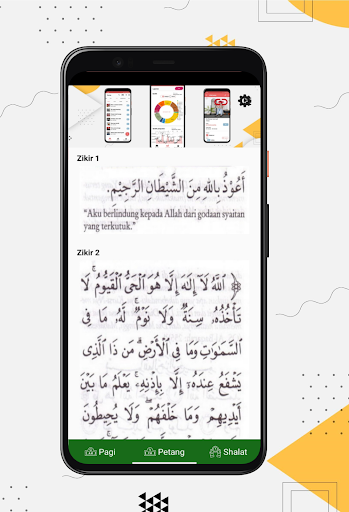 Zikir 1
أَعُوْذُ بِاللهِ مِنَ الشَّيْطَانِ الرَّجِيْمِ.
"Aku berlindung kepada Allah dari godaan syaitan
yang terkutuk."
Zikir 2
ٱللَّهُ لَآ إِلَٰهَ إِلَّا هُوَ ٱلْحَىُّ ٱلْقَيُّومُ ۚ لَا
تَأْخُذُهُۥ سِنَةٌ وَلَا نَوْمٌ ۚ لَّهُۥ مَا فِى
ٱلسَّمَٰوَٰتِ وَمَا فِى ٱلْأَرْضِ ۗ مَن ذَا ٱلَّذِى
يَشْفَعُ عِندَهُۥٓ إِلَّا بِإِذْنِهِۦ ۚ يَعْلَمُ مَا بَيْنَ
أَيْدِيهِمْ وَمَا خَلْفَهُمْ ۖ وَلَا يُحِيطُونَ
Pagi
Petang
Shalat